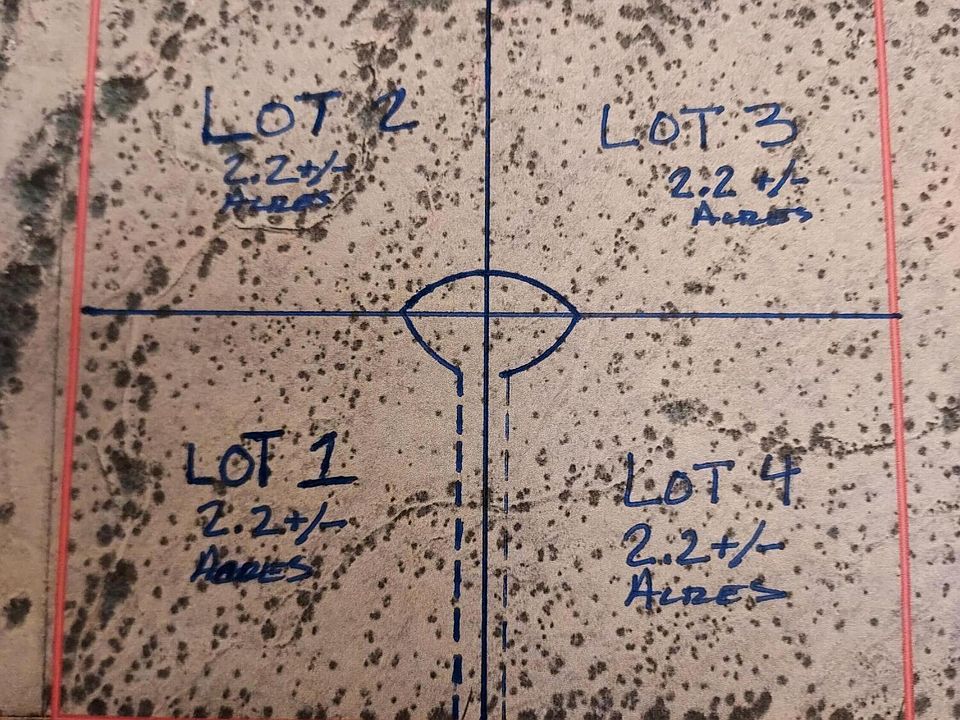 LOT 2
2.2 +/-
ACRES
LOT 3
2.2 +/-
ACRES
LOT 1
2.2 +/-
ACRES
LOT 4
2.2 +/-
ACRES